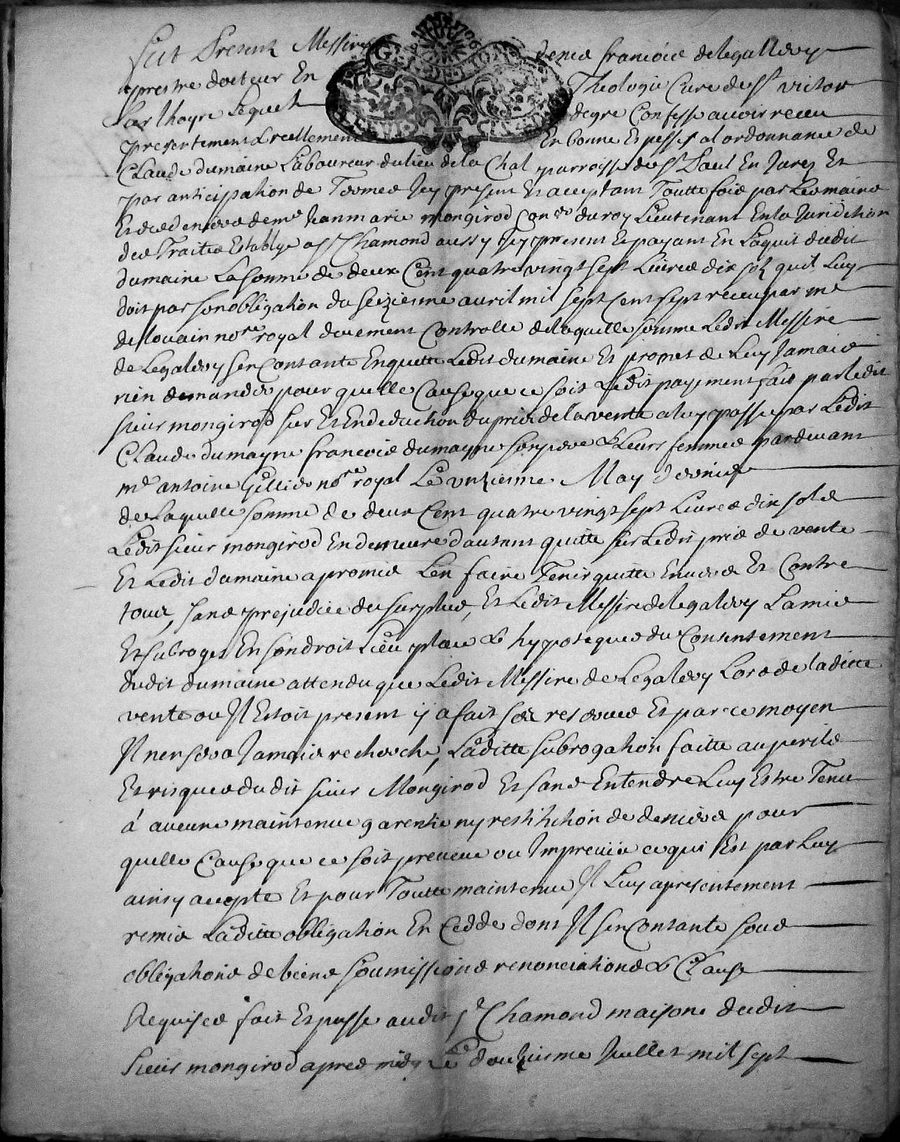 fut Present Messire denis françois de legallery
prestre docteur En Theologie Cure de St victor
sur lhoyre Lequel degre Confesse avoir receu
presentement & reellement En bonne Especes a lordonnance de
Claude dumaine Laboureur du lieu de la Chal parroisse de St Paul En Jarez Et
par anticipation de Termes Icy present Et acceptant Toutte fois par Les mains
Et des deniers de me Jean marie mongirod Coner du roy Lieutenant En la Juridiction
des Traites Establye a St Chamond aussy Icy present Et payant En Laquit dudit
dumaine La somme de deux Cent quatre vingt sept Livres dix solz quil Luy
doit par son obligation du seizieme avril mil sept Cent sept receu par me
de louain nore royal duement Controlle de laquelle somme Ledit Messire
de Legallery sen Contante En quitte Ledit dumaine Et promet de Luy Jamais
rien demander pour quelle Cause que ce soit Ledit payment fait par ledit
sieur mongirod sur Et En deduction du prix de la vente a luy passe par Ledit
Claude dumayne françois dumayne son pere & Leurs femmes pardevant
me antoine Gillier nore royal Le unzieme May dernier
de Laquelle somme de deux Cent quatre vingt sept Livres dix sols
Ledit sieur mongirod En demeure dautant quitte sur Ledit prix de vente
Et Ledit dumaine a promis Len faire Tenir quitte Envers Et Contre
tous, sans prejudice du surplus, Et Ledit Messire de legallery La mis
Et subroge En son droit Lieu place & hypoteques du Consentement
dudit dumaine attendu que Ledit Messire de Legallery Lors de ladite
vente ou Il Estoit present il y a fait ses reserves Et par ce moyen
Il nen sera Jamais recherche, Laditte subrogation faitte au perils
Et risques du dit sieur Mongirod Et sans Entendre Luy Estre Tenu
a aucune maintenue garentie ny restitution de deniers pour
quelle Cause que ce soit preveue ou Impreveue ce qui Est par Luy
ainsy accepte Et pour Toutte maintenue Il Luy a presentement
remis Laditte obligation En Cedde dont Il sen Contante sous
obligations de biens soumissions renonciations & Clauses
Requises fait Et passe audit St Chamond maison dudit
sieur mongirod apres midy Le douzieme Juillet mil sept